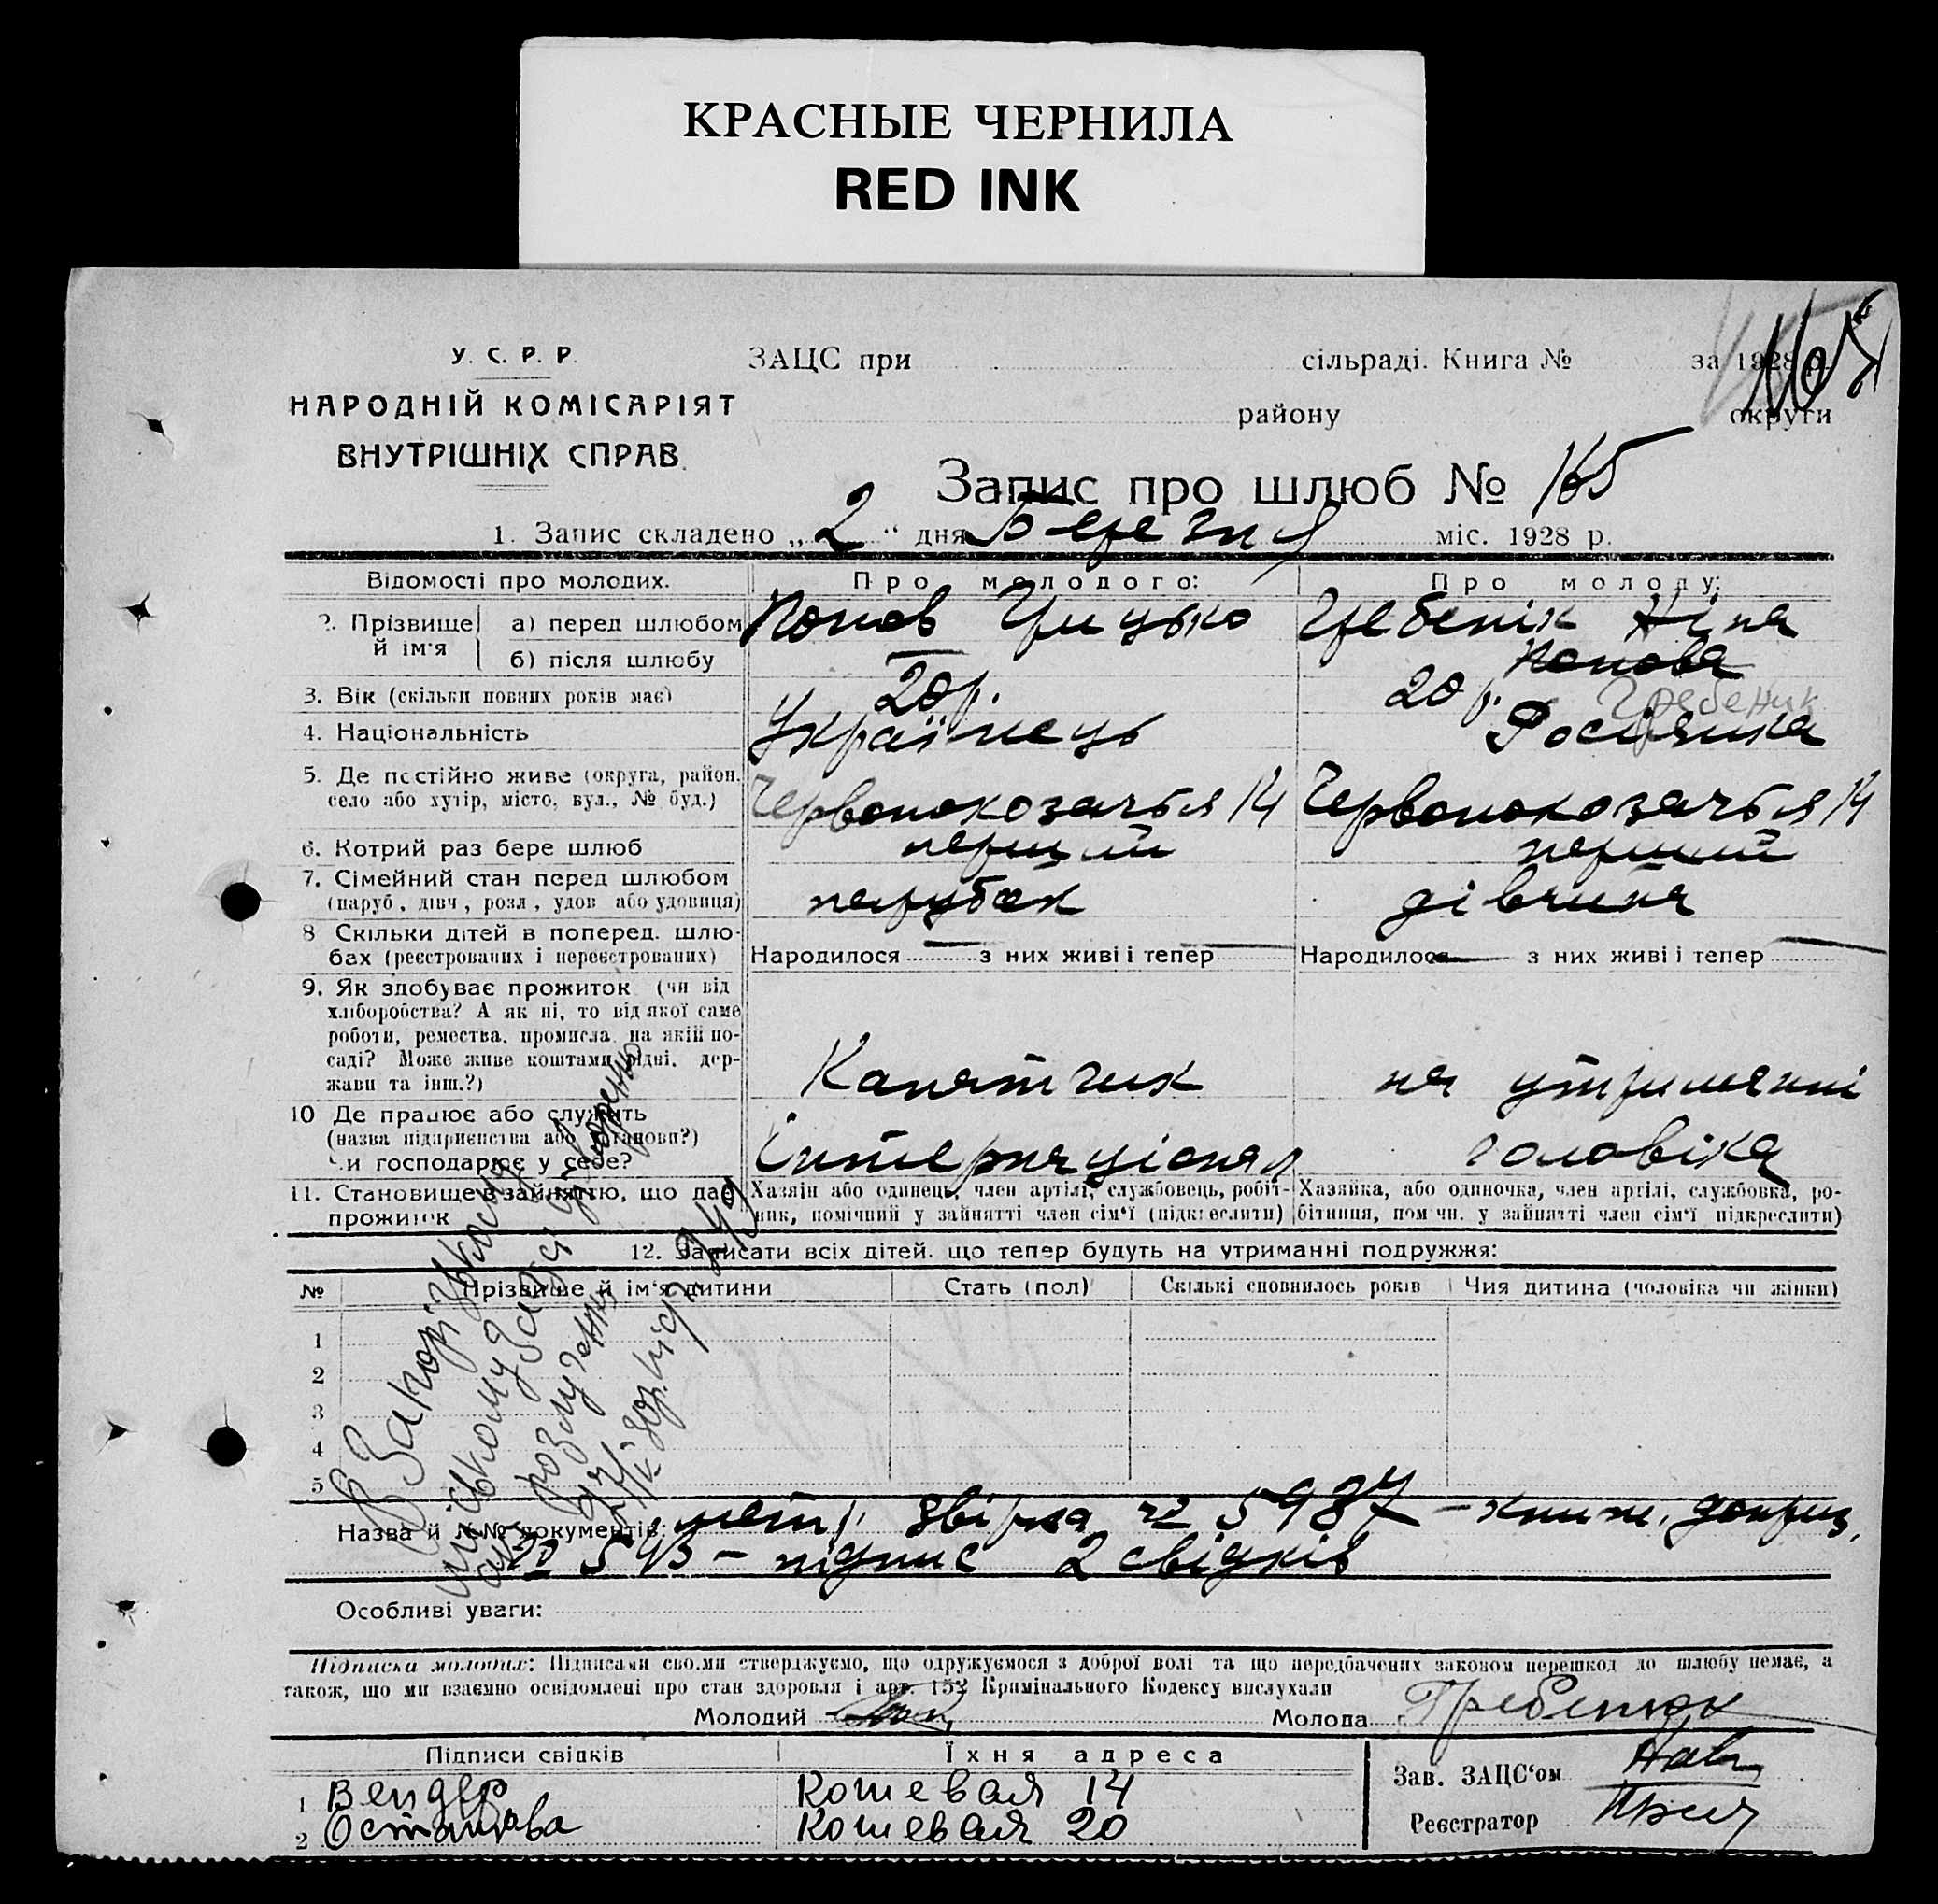 КРАСНЫЕ ЧЕРНИЛА
RED INK
165
У. С. Р. Р.
НАРОДНІЙ КОМІСАРІЯТ
ВНУТРІШНІХ СПРАВ.
ЗАЦС при сільраді. Книга № за 1928 р.
району округи
Запис про шлюб № 165
1. Запис складено „ 2 “ дня Березня міс. 1928 р.
Відомості про молодих. Про молодого: Про молоду:
2. Прізвище й ім'я
а) перед шлюбом Попов Грицько Гребенік Ніна
б) після шлюбу — Попова
Гребеник
3. Вік (скільки повних років має) 20 р. 20 р.
4. Національність Українець Росіянка
5. Де постійно живе (округа, район, село або хутір, місто, вул., № буд.) Червонокозачья 14 Червонокозачья 14
6. Котрий раз бере шлюб перший перший
7. Сімейний стан перед шлюбом (паруб., дівч., розл., удов. або удовиця) парубок дівчина
8 Скільки дітей в поперед. шлюбах (реєстрованих і нереєстрованих) Народилося — з них живі і тепер — Народилося — з них живі і тепер —
9. Як здобуває прожиток (чи від
хліборобства? А як ні, то від якої саме
роботи, ремества, промисла, на якій по-
саді? Може живе коштами рідні, дер-
жави та інш.?) Канатчик на утриманні
10 Де працює або служить
(назва підприємства або установи?)
Чи господарює у себе? Інтернаціонал чоловіка
11. Становище в зайняттю, що дає прожиток
Хазяїн або одинець, член артілі, службовець, робіт-
ник, помічний у зайнятті член сім'ї (підкреслити)
Хазяйка, або одиночка, член артілі, службовка, ро-
бітниця, пом чн. у зайнятті член сім'ї підкреслити)
12. Записати всіх дітей. що тепер будуть на утриманні подружжя:
№ Прізвище й ім'я дитини Стать (пол) Скількі сповнилось років Чия дитина (чоловіка чи жінки)
1
2
3
4
5
В Запорізькому
міському Загсі утворень
акт розлученн
Назва й №№ документів: метр. звірка № 5987 – книж. доприз.
№ 543 – підпис 2 свідків
Особливі уваги:
Підписка молодих: Підписами своїми стверджуємо, що одружуємося з доброї волі та що передбачених законом перешкод до шлюбу немає, а
також, що ми взаємно освідомлені про стан здоровля і арт. 152 Кримінального Кодексу вислухали
Молодий Молода Гребенюк
Підписи свідків Їхня адреса
1 Вендер Кошевая 14
2 Кошевая 20
Зав. ЗАЦС'ом
Реєстратор